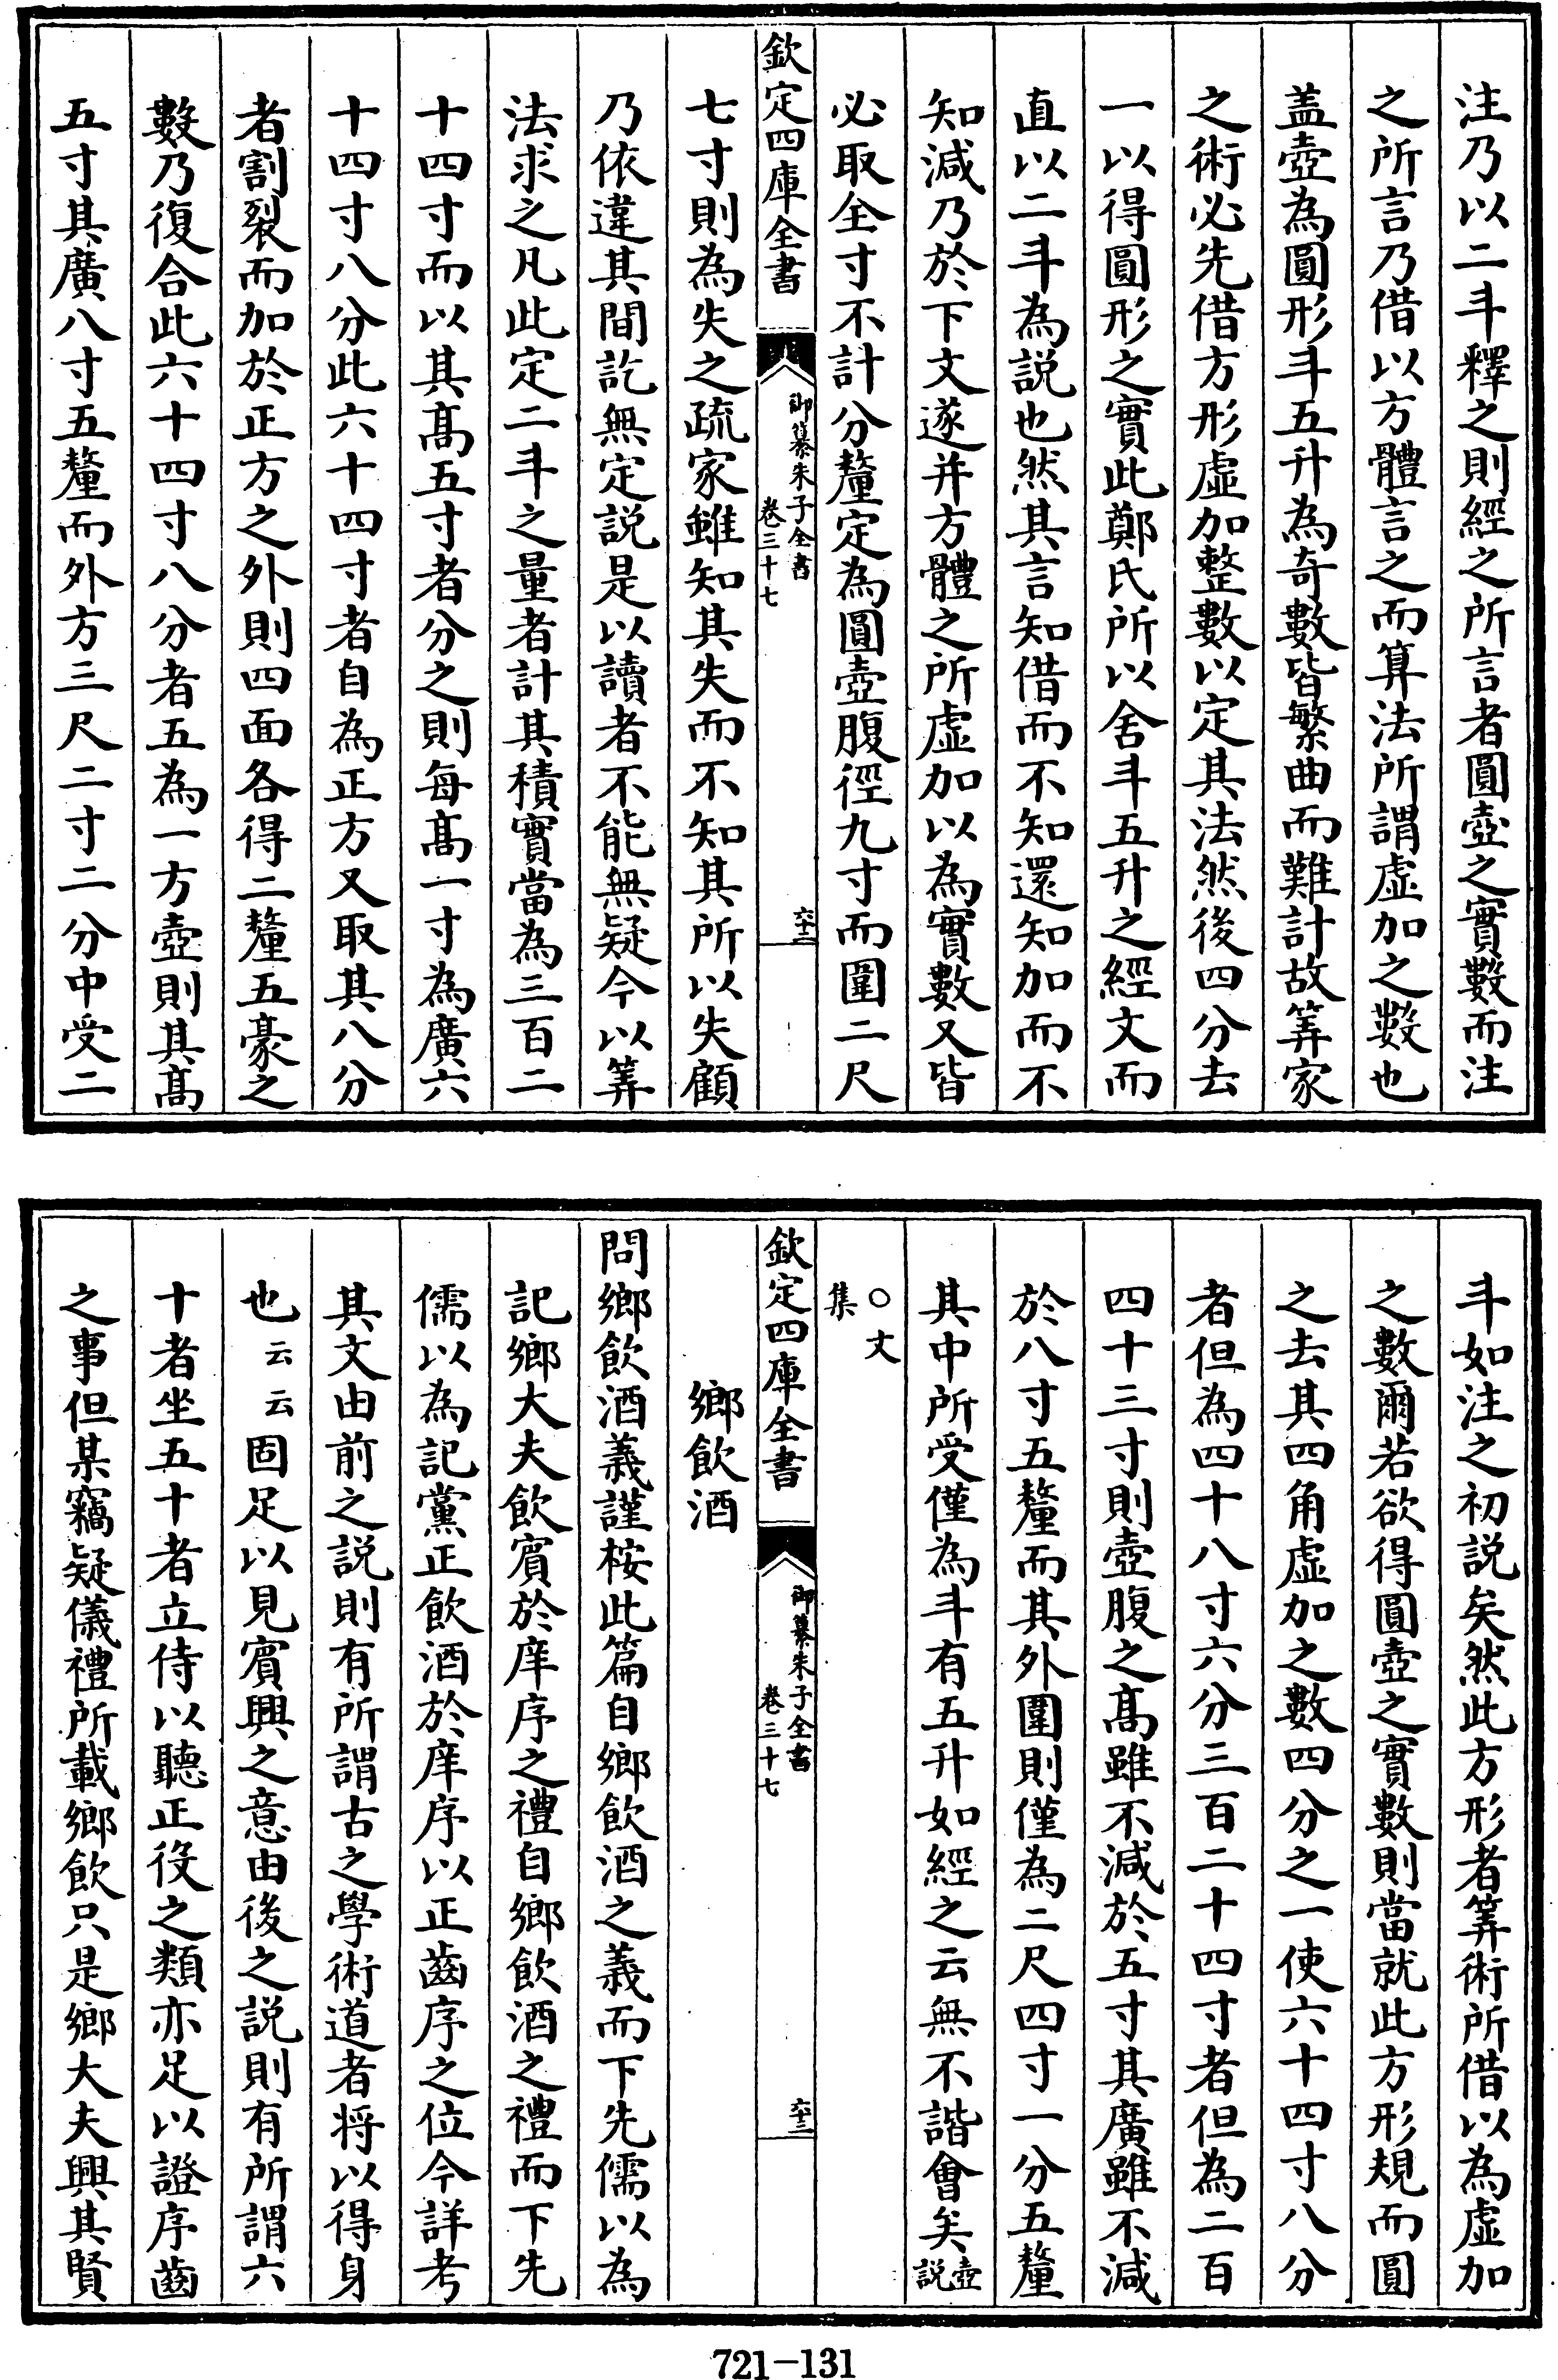 注乃以二斗釋之則經之所言者圓壺之實數而注
之所言乃借以方體言之而算法所謂虛加之數也
盖壺為圓形斗五升為奇數皆繁曲而難計故筭家
之術必先借方形虛加整數以定其法然後四分去
一以得圓形之實此鄭氏所以舍斗五升之經文而
直以二斗為説也然其言知借而不知還知加而不
知減乃於下文遂并方體之所虛加以為實數又皆
必取全寸不計分釐定為圓壺腹徑九寸而圍二尺
欽定四庫全書
御纂朱子全書
卷三十七
六十二
七寸則為失之疏家雖知其失而不知其所以失顧
乃依違其間訖無定説是以讀者不能無疑今以筭
法求之凡此定二斗之量者計其積實當為三百二
十四寸而以其髙五寸者分之則每髙一寸為廣六
十四寸八分此六十四寸者自為正方又取其八分
者割裂而加於正方之外則四面各得二釐五豪之
數乃復合此六十四寸八分者五為一方壺則其髙
五寸其廣八寸五釐而外方三尺二寸二分中受二
斗如注之初説矣然此方形者筭術所借以為虛加
之數爾若欲得圓壺之實數則當就此方形規而圓
之去其四角虛加之數四分之一使六十四寸八分
者但為四十八寸六分三百二十四寸者但為二百
四十三寸則壺腹之髙雖不減於五寸其廣雖不減
於八寸五釐而其外圍則僅為二尺四寸一分五釐
其中所受僅為斗有五升如經之云無不諧會矣壺説
○文集
欽定四庫全書
御纂朱子全書
卷三十七
六十三
鄉飲酒
問鄉飲酒義謹桉此篇自鄉飲酒之義而下先儒以為
記鄉大夫飲賓於庠序之禮自鄉飲酒之禮而下先
儒以為記黨正飲酒於庠序以正齒序之位今詳考
其文由前之説則有所謂古之學術道者將以得身
也云云固足以見賓興之意由後之説則有所謂六
十者坐五十者立侍以聽正役之類亦足以證序齒
之事但某竊疑儀禮所載鄉飲只是鄉大夫興其賢
721-131